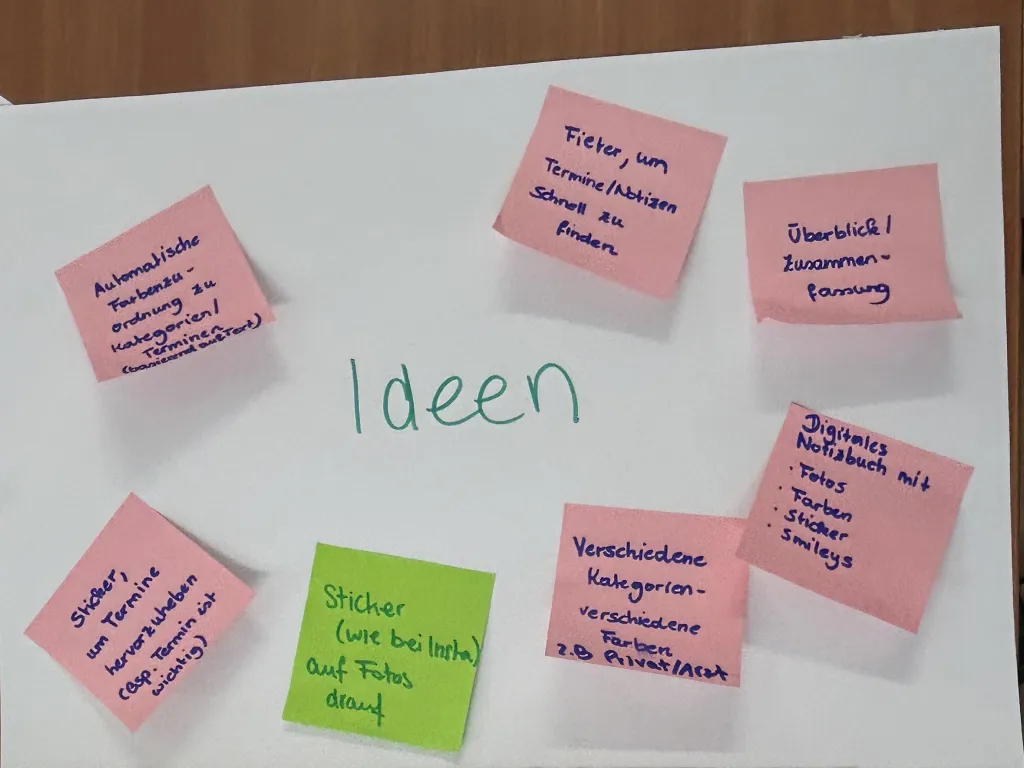 Fieter, um
Termine/Notizen
schnell zu
finden
Überblick/
Zusammen-
fassung
Automatische
Farbenzu-
ordnung zu
Kategorien/
Terminen
(basierend auf Text)
Ideen
Digitales
Notizbuch mit
· Fotos
· Farben
· Sticker
· Smileys
Sticker,
um Termine
hervorzuheben
(bsp. Termin ist
wichtig)
Sticker
(wie bei Insta)
auf Fotos
drauf
Verschiedene
Kategorien-
verschiedene
Farben
z.B Privat/Arzt